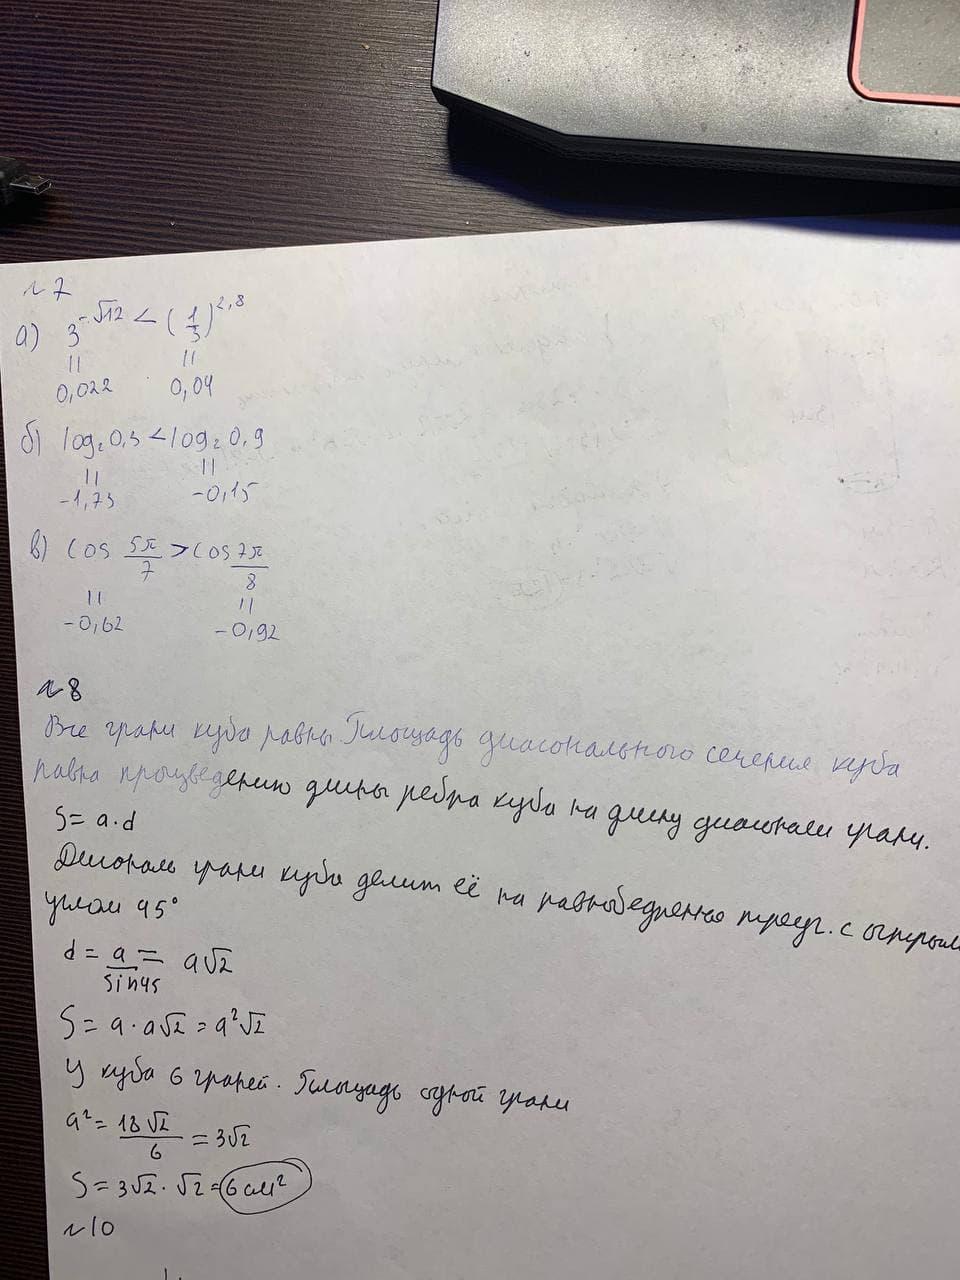 №7
а) 3^-√12 < (1/3)^2,8
= =
0,022 0,04
б) log₂0,3 < log₂0,9
= =
-1,73 -0,15
в) cos 5π/7 > cos 7π/8
= =
-0,62 -0,92
№8
Все грани куба равны Площадь диагонального сечения куба
равна произведению длины ребра куба на длину диагонали грани.
S = a·d
Диагональ грани куба делит её на равнобедренные треуг. с острым
углом 45°
d = a/sin45 = a√2
S = a·a√2 = a²√2
У куба 6 граней. Площадь одной грани
a² = 18√2/6 = 3√2
S = 3√2·√2 = 6 см²
№10